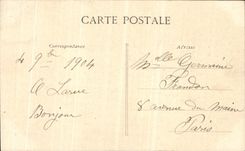 CARTE POSTALE
Correspondance
Adresse
4 9bre 1904
A Larue
Bonjour
Mlle Germaine
8 avenue du Maine
Paris